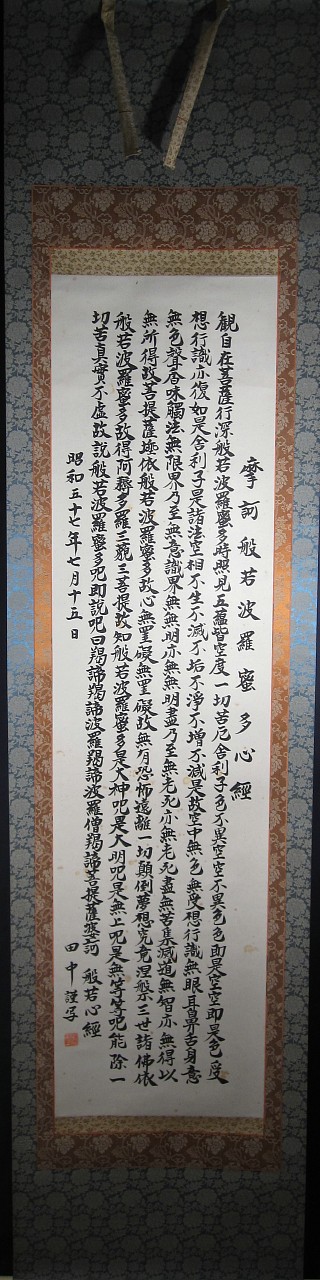 摩訶般若波羅蜜多心經
觀自在菩薩行深般若波羅蜜多時照見五蘊皆空度一切苦厄舍利子色不異空空不異色色即是空空即是色受
想行識亦復如是舍利子是諸法空相不生不滅不垢不淨不增不減是故空中無色無受想行識無眼耳鼻舌身意
無色聲香味觸法無限界乃至無意識界無無明亦無無明盡乃至無老死亦無老死盡無苦集滅道無智亦無得以
無所得故菩提薩埵依般若波羅蜜多故心無罣礙無罣礙故無有恐怖遠離一切顛倒夢想究竟涅槃三世諸佛依
般若波羅蜜多故得阿耨多羅三藐三菩提故知般若波羅蜜多是大神呪是大明呪是無上呪是無等等呪能除一
切苦真實不虛故說般若波羅蜜多呪即說呪曰羯諦羯諦波羅羯諦波羅僧羯諦菩提薩婆訶 般若心經
昭和五十七年七月十五日
田中謹写